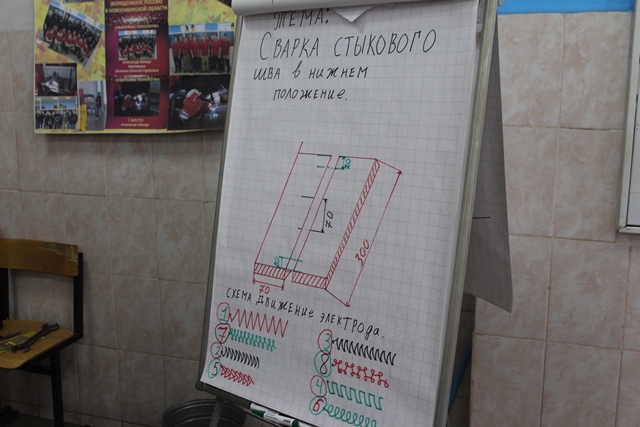 ТЕМА:
СВАРКА СТЫКОВОГО
ШВА В НИЖНЕМ
ПОЛОЖЕНИЕ.
70
300
70
СХЕМА ДВИЖЕНИЕ ЭЛЕКТРОДА.
1
7
2
5
3
8
4
6